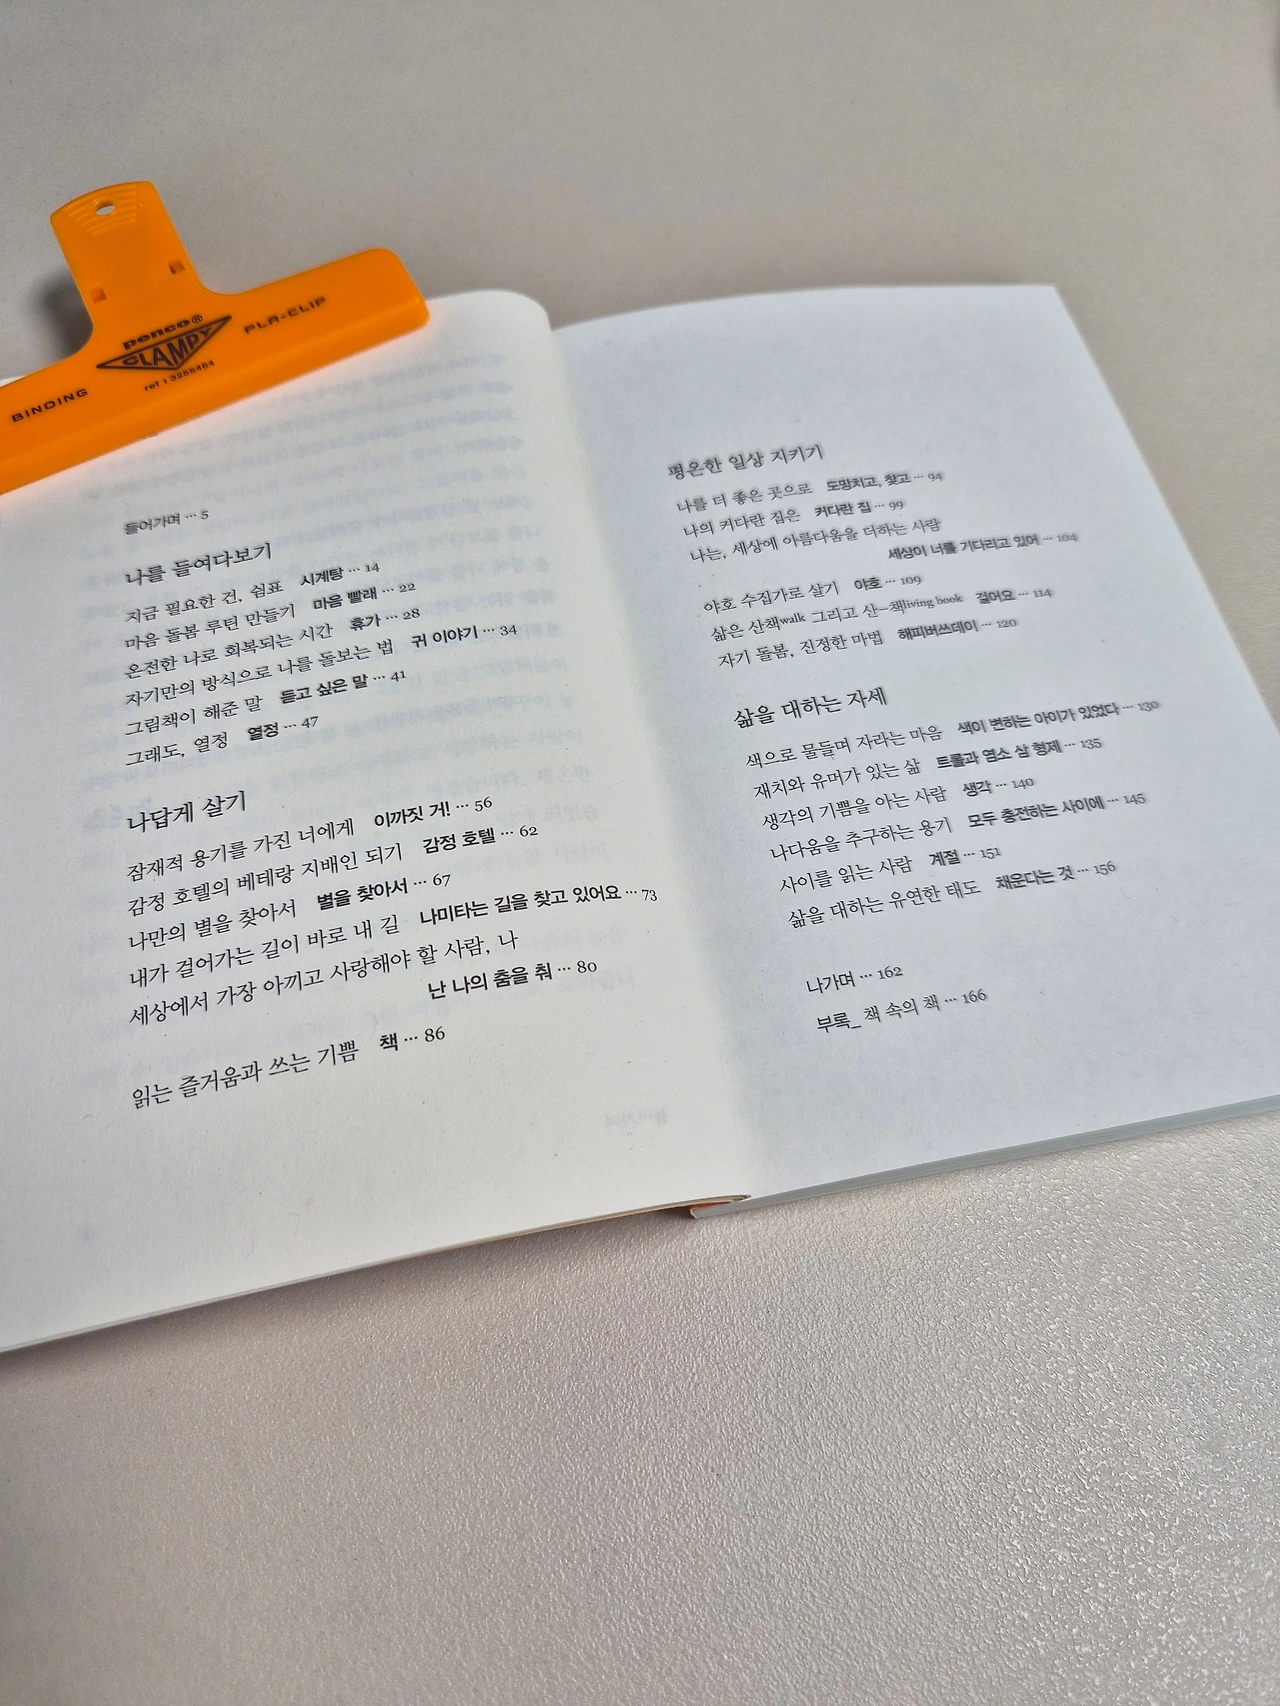 penco®
CLAMPY
BINDING
PLA-CLIP
ref : 3255464
들어가며 ··· 5
나를 들여다보기
지금 필요한 건, 쉼표 시계탕 ··· 14
마음 돌봄 루틴 만들기 마음 빨래 ··· 22
온전한 나로 회복되는 시간 휴가 ··· 28
자기만의 방식으로 나를 돌보는 법 귀 이야기 ··· 34
그림책이 해준 말 듣고 싶은 말 ··· 41
그래도, 열정 열정 ··· 47
나답게 살기
잠재적 용기를 가진 너에게 이까짓 거! ··· 56
감정 호텔의 베테랑 지배인 되기 감정 호텔 ··· 62
나만의 별을 찾아서 별을 찾아서 ··· 67
내가 걸어가는 길이 바로 내 길 나미타는 길을 찾고 있어요 ··· 73
세상에서 가장 아끼고 사랑해야 할 사람, 나
난 나의 춤을 춰 ··· 80
읽는 즐거움과 쓰는 기쁨 책 ··· 86
평온한 일상 지키기
나를 더 좋은 곳으로 도망치고, 찾고 ··· 94
나의 커다란 집은 커다란 집 ··· 99
나는, 세상에 아름다움을 더하는 사람
세상이 너를 기다리고 있어 ··· 104
야호 수집가로 살기 야호 ··· 109
삶은 산책walk 그리고 산–책living book 걸어요 ··· 114
자기 돌봄, 진정한 마법 해피버쓰데이 ··· 120
삶을 대하는 자세
색으로 물들며 자라는 마음 색이 변하는 아이가 있었다 ··· 130
재치와 유머가 있는 삶 트롤과 염소 삼 형제 ··· 135
생각의 기쁨을 아는 사람 생각 ··· 140
나다움을 추구하는 용기 모두 충전하는 사이에 ··· 145
사이를 읽는 사람 계절 ··· 151
삶을 대하는 유연한 태도 채운다는 것 ··· 156
나가며 ··· 162
부록_ 책 속의 책 ··· 166